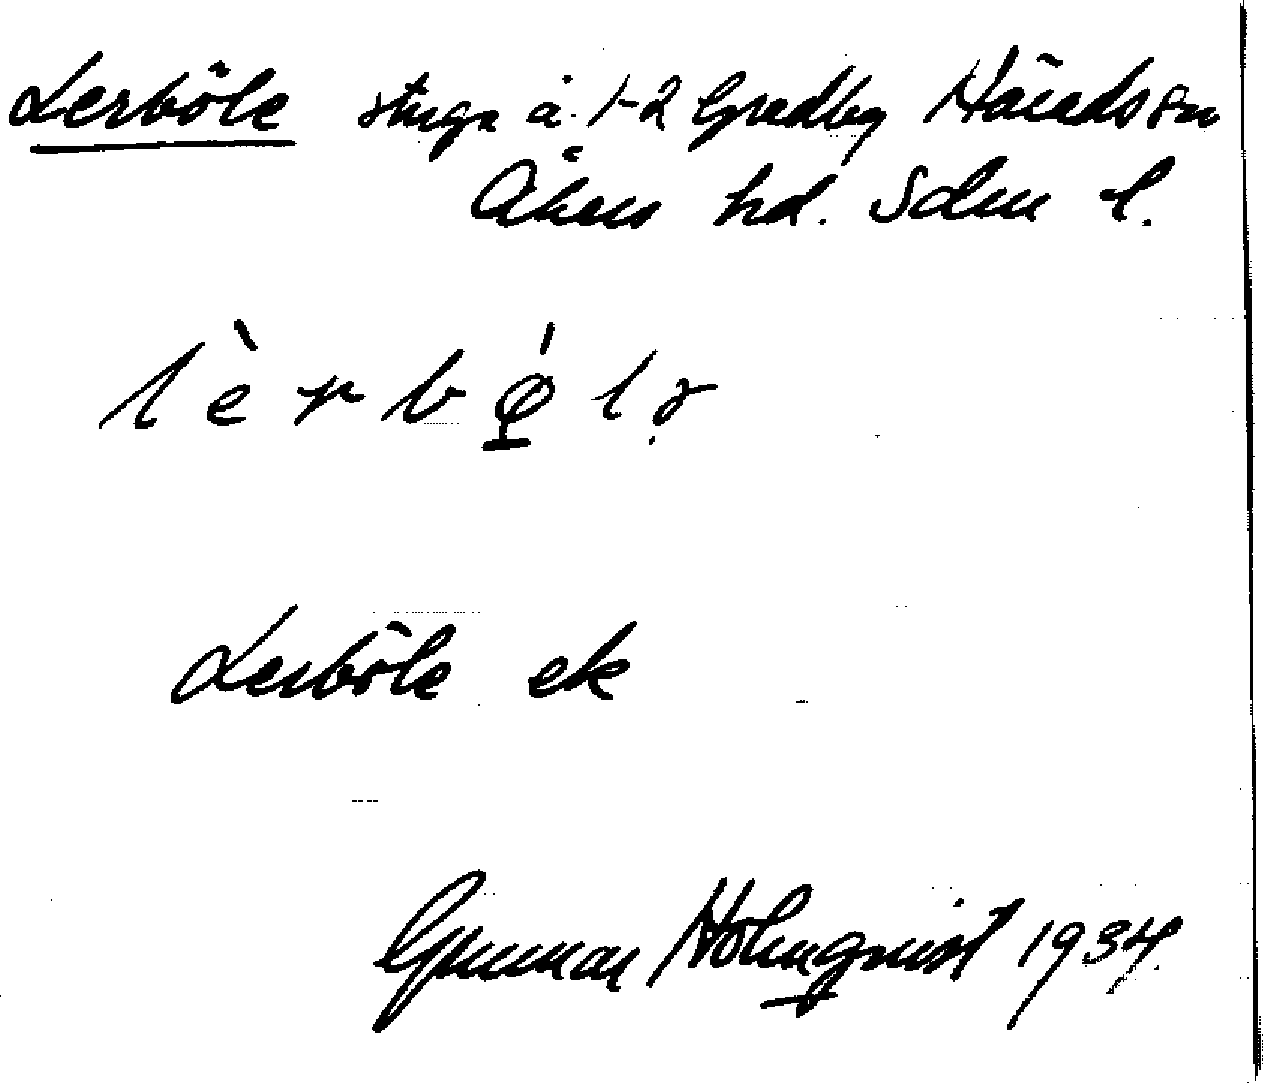 Lerböle stuga å 1-2 Gredby Härads sn
Åkers hd. Sdm l.
Lerböle ek
Gunnar Holmquist 1934.